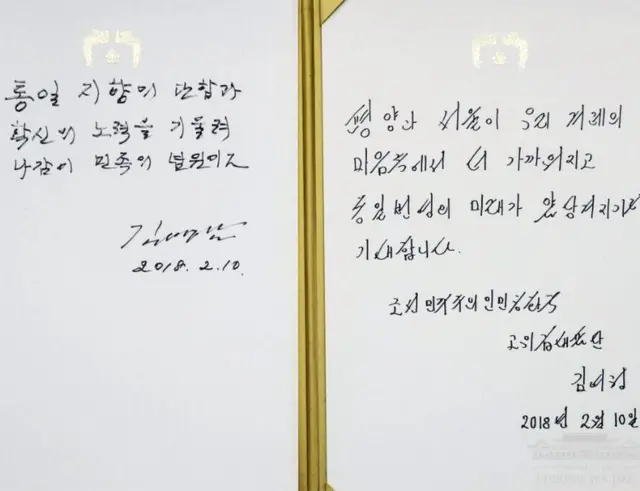 통일 지향의 단합과
확신의 노력을 기울려
나감이 민족의 념원이다
김영남
2018. 2. 10.
평양과 서울이 우리 겨레의
마음속에서 더 가까워지고
통일번영의 미래가 앞당겨지기를
기대합니다.
조선민주주의인민공화국
고위급대표단
김여정
2018년 2월 10일